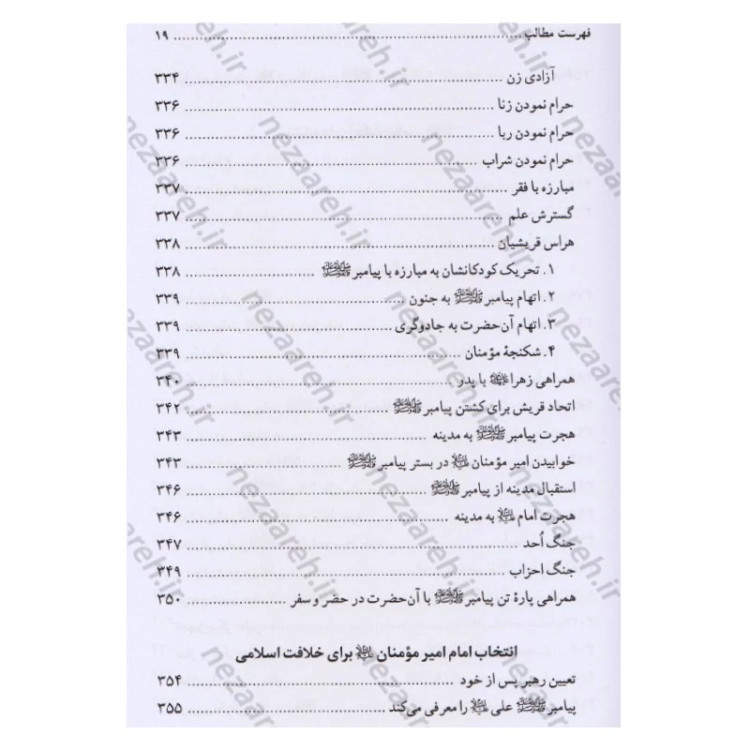 فهرست مطالب ..... ۱۹
آزادی زن ..... ۳۳۴
حرام نمودن زنا ..... ۳۳۶
حرام نمودن ربا ..... ۳۳۶
حرام نمودن شراب ..... ۳۳۶
مبارزه با فقر ..... ۳۳۷
گسترش علم ..... ۳۳۷
هراس قریشیان ..... ۳۳۸
۱. تحریک کودکانشان به مبارزه با پیامبر ﷺ ..... ۳۳۸
۲. اتهام پیامبر ﷺ به جنون ..... ۳۳۹
۳. اتهام آن‌حضرت به جادوگری ..... ۳۳۹
۴. شکنجهٔ مؤمنان ..... ۳۳۹
همراهی زهرا با پدر ..... ۳۴۰
اتحاد قریش برای کشتن پیامبر ﷺ ..... ۳۴۲
هجرت پیامبر ﷺ به مدینه ..... ۳۴۳
خوابیدن امیر مؤمنان در بستر پیامبر ﷺ ..... ۳۴۳
استقبال مدینه از پیامبر ﷺ ..... ۳۴۶
هجرت امام به مدینه ..... ۳۴۶
جنگ اُحد ..... ۳۴۷
جنگ احزاب ..... ۳۴۹
همراهی پارهٔ تن پیامبر ﷺ با آن‌حضرت در حضر و سفر ..... ۳۵۰
انتخاب امام امیر مؤمنان برای خلافت اسلامی
تعیین رهبر پس از خود ..... ۳۵۴
پیامبر ﷺ علی را معرفی می‌کند ..... ۳۵۵
nezaareh.ir